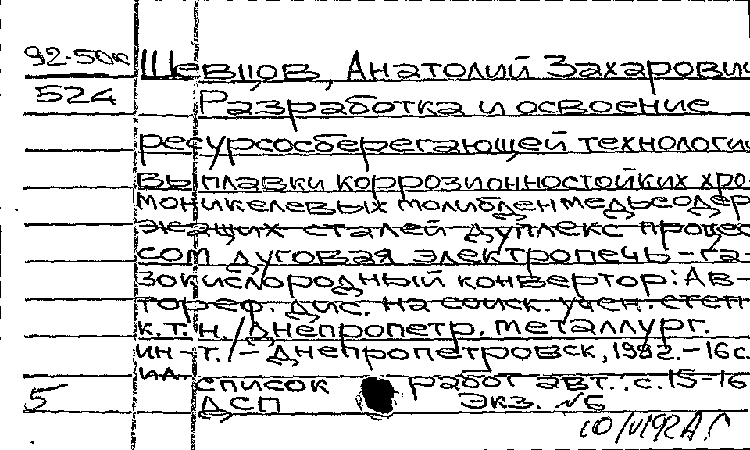 92-50к Шевцов, Анатолий Захарович
524 Разработка и освоение
ресурсосберегающей технологии
выплавки коррозионностойких хро-
моникелевых молибденмедьсодер-
жащих сталей дуплекс процес-
сом дуговая электропечь - га-
зокислородный конвертор: Ав-
тореф. дис. на соиск. учен. степ.
к.т.н. / Днепропетр. металлург.
ин-т. / - Днепропетровск, 1992. - 16 с.
список работ авт.: с. 15-16
5 ДСП Экз. №5